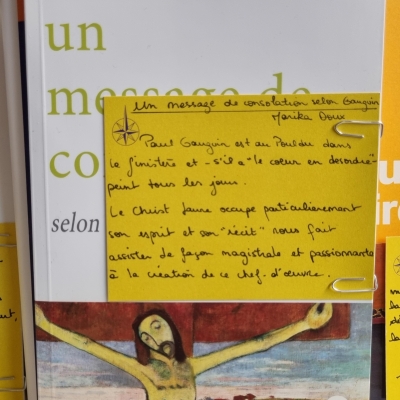 un
message de
co
selon
Un message de consolation selon Gauguin
Marika Doux
Paul Gauguin est au Pouldu dans
le Finistère et - s'il a "le coeur en desordre" -
peint tous les jours.
Le Christ Jaune occupe particulièrement
son esprit et son "récit" nous fait
assister de façon magistrale et passionnante
à la création de ce chef-d'œuvre.